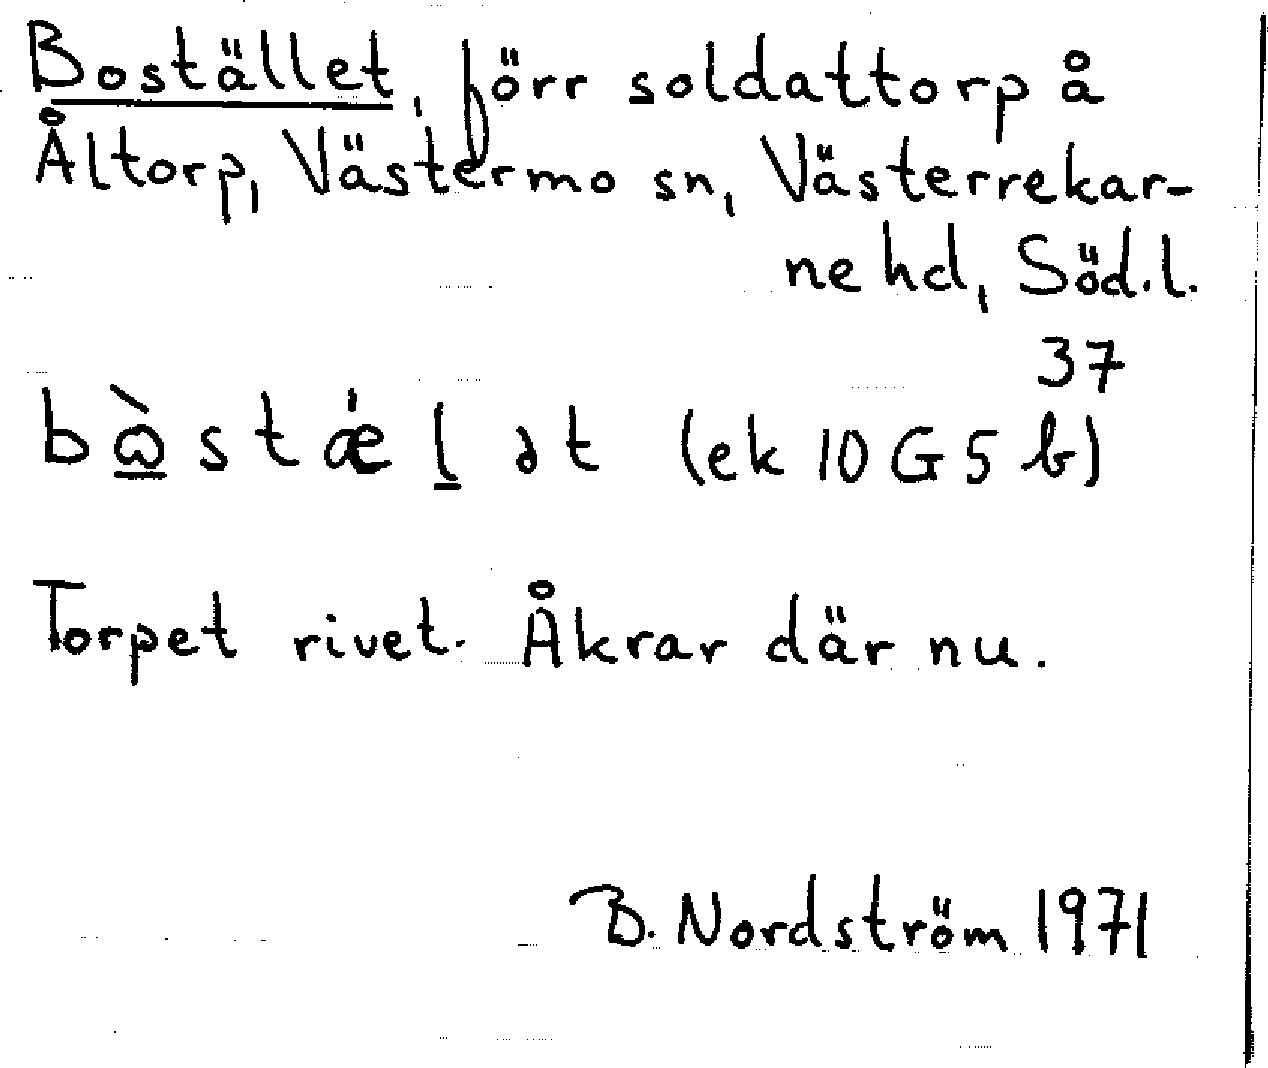 Bostället, förr soldattorp å
Åltorp, Västermo sn, Västerrekar-
ne hd, Söd.l.
37
bὼstǽl̲ət (ek 10 G 5 b)
Torpet rivet. Åkrar där nu.
B. Nordström 1971